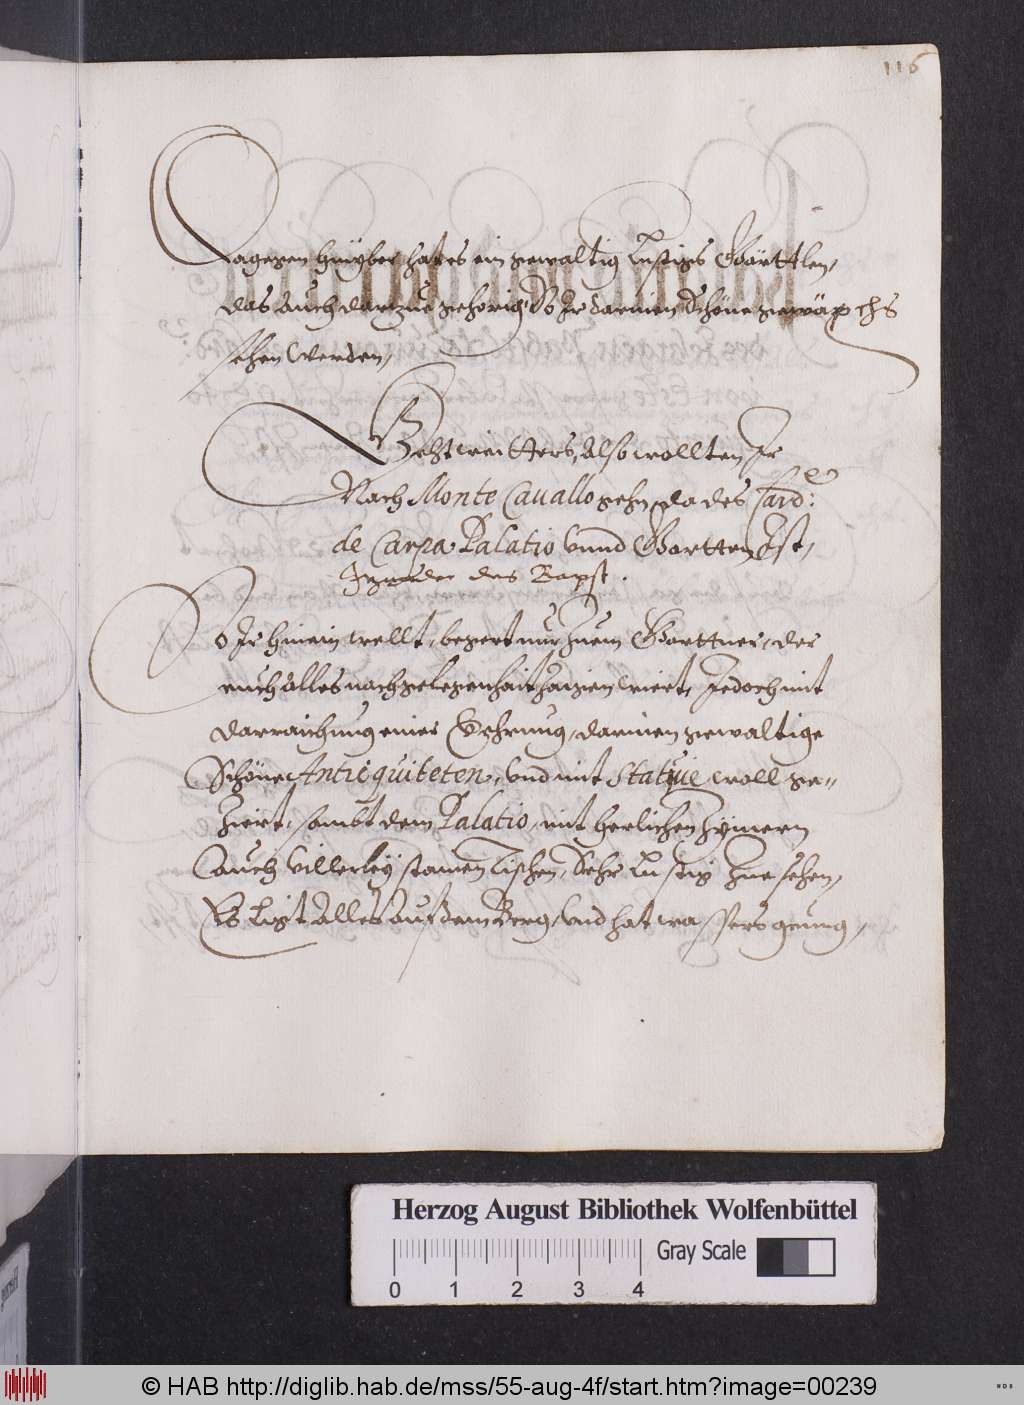 116
Dagegen hinyber hat es ein gewaltig Lustigs Gärttlen,
das auch dartzue gehörig, So Ir darinen Schöne gewäxchs
sehen werden,
Geht weitters, Also wollten Ir
Nach Monte Cavallo gehn, da des Card:
de Carpa Palatio vnnd Gartten Ist,
Jetzunder des Bapst.
So Ir hinein wellt, begert nur Zuem Garttner, der
euch Alles nach gelegenhait zaigen wiert, Jedoch mit
darraichung einer Verehrung, darinen gewaltige
Schöne Antiquiteten, vnd mit Statue woll ge-
ziert, sambt dem Palatio, mit herlichen Zymern
auch villerley stainen Tischen, Sehr Lustig Zue sehen,
Es Ligt Alles auf dem Berg, vnd hat wassers genug,
Herzog August Bibliothek Wolfenbüttel
Gray Scale
0 1 2 3 4
© HAB http://diglib.hab.de/mss/55-aug-4f/start.htm?image=00239